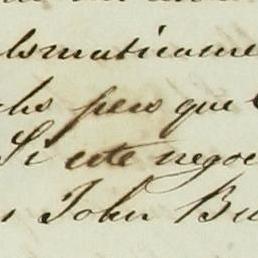 lsmaticame
cho pero que
Si este negoc
n John Bu